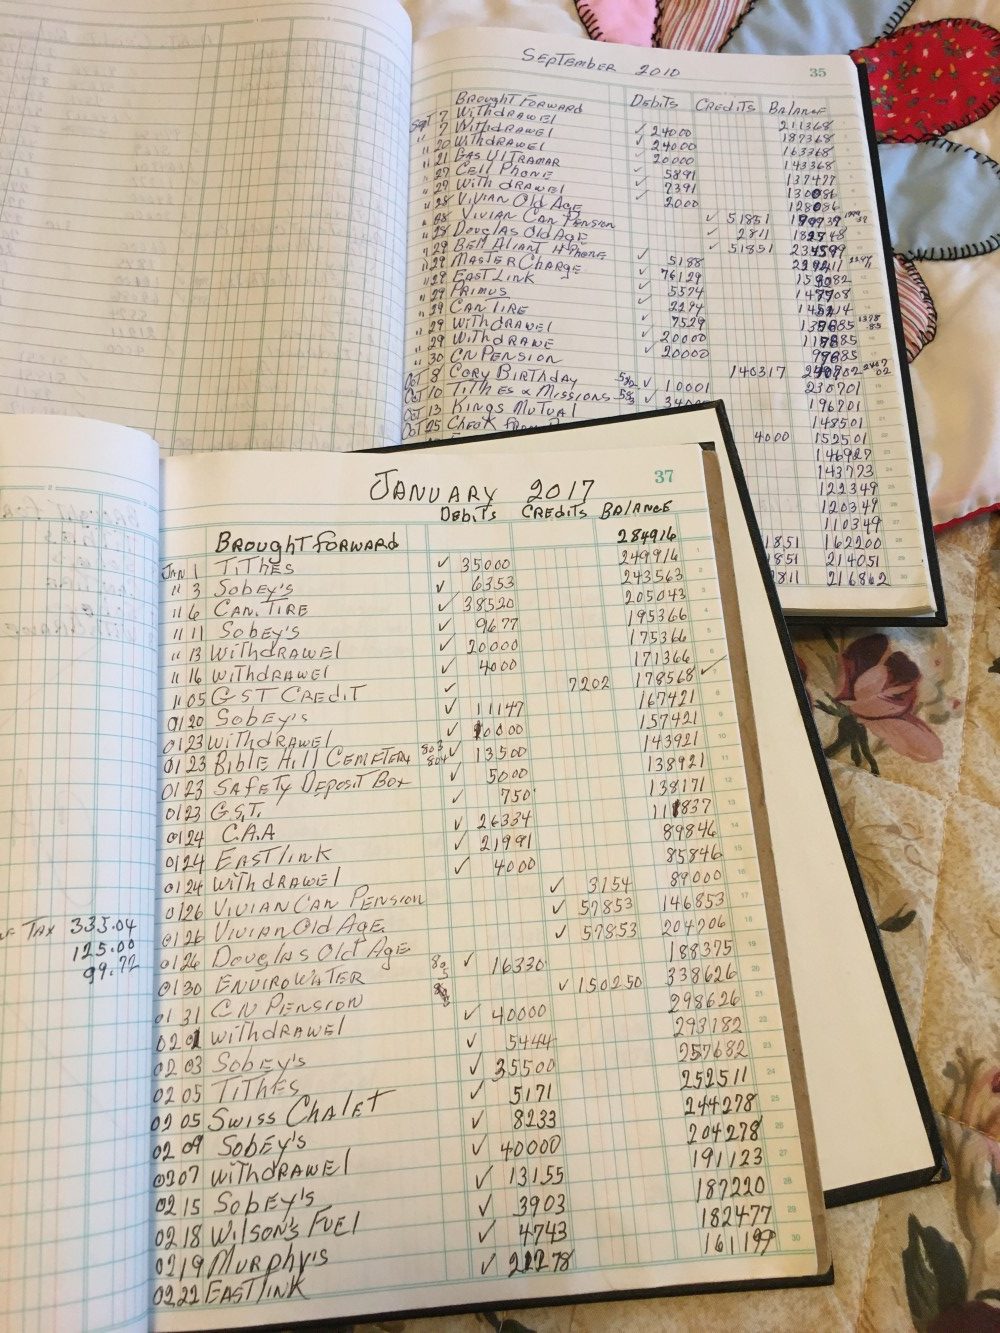 September 2010 35
Debits Credits Balance
Brought Forward 211368
Sept 7 Withdrawel ✓ 24000 187368
" 7 Withdrawel ✓ 24000 163368
" 20 Withdrawel ✓ 20000 143368
" 21 Gas Ultramar ✓ 5891 137477
" 27 Cell Phone ✓ 7391 130086
" 27 Withdrawel ✓ 2000 128086
" 28 Vivian Old Age ✓ 51851 179937
" 28 Vivian Can Pension ✓ 2811 182748
" 28 Douglas Old Age ✓ 51851 234599
" 29 Bell Aliant H Phone ✓ 5188 229411
" 29 Master Charge ✓ 76129
" 29 Eastlink ✓ 5574 147708
" 29 Primus ✓ 2294 145414
" 29 Can Tire ✓ 7529 137885
" 29 Withdrawel ✓ 20000 117885
" 29 Withdrawe ✓ 20000 97885
" 30 CN Pension 140317
Oct 8 Cory Birthday 582 ✓ 10001 230701
Oct 10 Tithes & Missions 583 ✓ 34000 196701
Oct 13 Kings Mutual 148501
Oct 25 4000 152501
146927
143773
122349
120349
110349
1851 162200
851 214051
811 216862
January 2017 37
Debits Credits Balance
Brought Forward 284916
Jan 1 Tithes ✓ 35000 249916
" 3 Sobey's ✓ 6353 243563
" 6 Can. Tire ✓ 38520 205043
" 11 Sobey's ✓ 9677 195366
" 13 Withdrawel ✓ 20000 175366
" 16 Withdrawel ✓ 4000 171366
" 05 GST Credit ✓ 7202 178568 ✓
0120 Sobey's ✓ 11147 167421
0123 Withdrawel ✓ 10000 157421
0123 Bible Hill Cemetery 803 804 ✓ 13500 143921
0123 Safety Deposit Box ✓ 5000 138921
0123 G.S.T. ✓ 750 138171
0124 C.A.A ✓ 26334 111837
0124 Eastlink ✓ 21991 89846
0124 Withdrawel ✓ 4000 85846
0126 Vivian Can Pension ✓ 3154 89000
0126 Vivian Old Age ✓ 57853 146853
0126 Douglas Old Age ✓ 57853 204706
0130 Envirowater 805 ✓ 16330 188375
0131 CN Pension ✓ 150250 338626
0201 Withdrawel ✓ 40000 298626
0203 Sobey's ✓ 5444 293182
0205 Tithes ✓ 35500 257682
0205 Swiss Chalet ✓ 5171 252511
0209 Sobey's ✓ 8233 244278
0207 Withdrawel ✓ 40000 204278
0215 Sobey's ✓ 13155 191123
0218 Wilson's Fuel ✓ 3903 187220
0219 Murphy's ✓ 4743 182477
0222 Eastlink ✓ 21278 161199
Tax 335.04
125.00
99.72